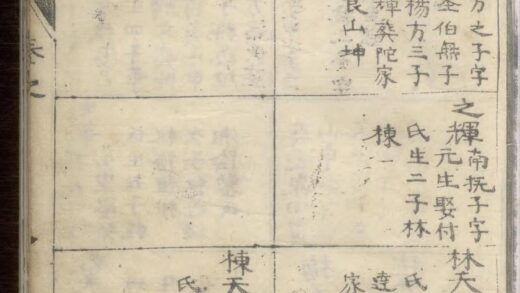 方之子字
伯無子
楊方三子
輝葬陀家
良山坤
之輝南抚子字
元生娶付
氏生二子林
棟一
林天
氏
家
棟天
氏
卷之